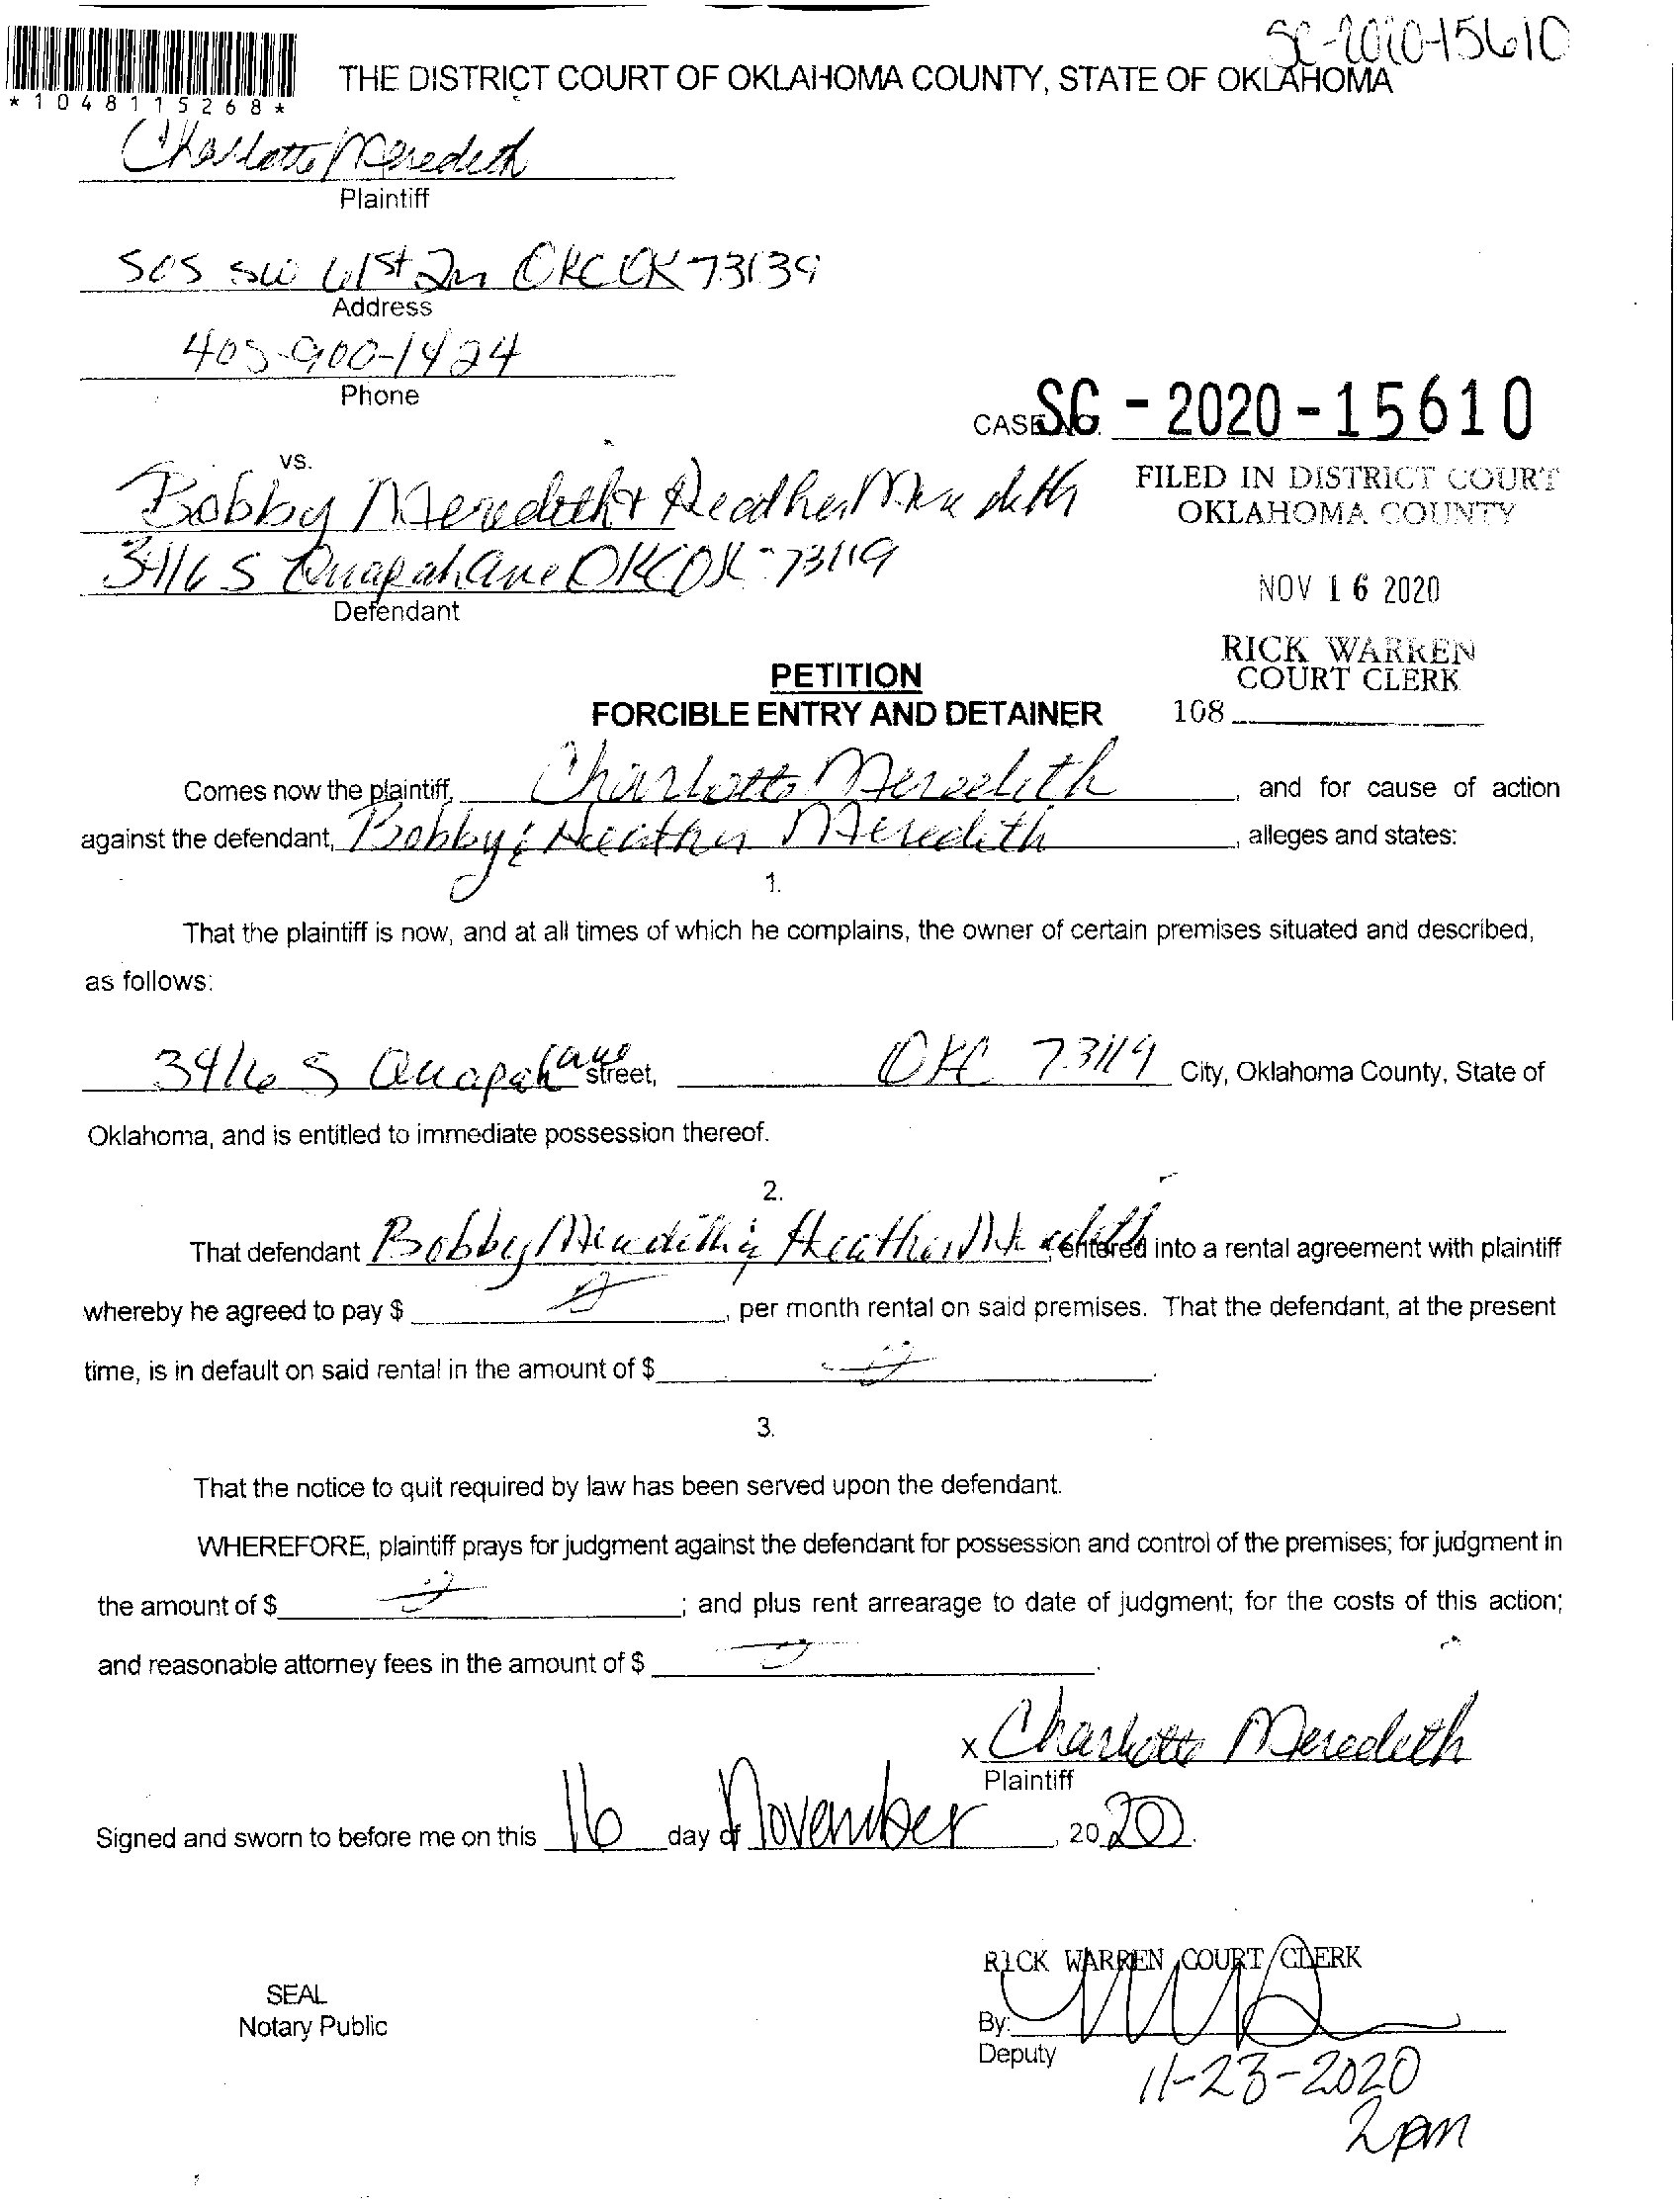 SC-2020-15610
THE DISTRICT COURT OF OKLAHOMA COUNTY, STATE OF OKLAHOMA
*1048115268*
Charlotte Meredith
Plaintiff
505 SW 61st OKC OK 73139
Address
405-900-1424
Phone
CASE NO. SC-2020-15610
vs.
Bobby Meredith & Heather Meredith
FILED IN DISTRICT COURT
OKLAHOMA COUNTY
3416 S Quapah ave OKC OK 73119
Defendant
NOV 16 2020
RICK WARREN
COURT CLERK
108
PETITION
FORCIBLE ENTRY AND DETAINER
Comes now the plaintiff, Charlotte Meredith, and for cause of action
against the defendant, Bobby & Heather Meredith, alleges and states:
1.
That the plaintiff is now, and at all times of which he complains, the owner of certain premises situated and described,
as follows:
3416 S Quapah ave street, OKC 73119 City, Oklahoma County, State of
Oklahoma, and is entitled to immediate possession thereof.
2.
That defendant Bobby Meredith & Heather Meredith, entered into a rental agreement with plaintiff
whereby he agreed to pay $, per month rental on said premises. That the defendant, at the present
time, is in default on said rental in the amount of $.
3.
That the notice to quit required by law has been served upon the defendant.
WHEREFORE, plaintiff prays for judgment against the defendant for possession and control of the premises; for judgment in
the amount of $; and plus rent arrearage to date of judgment; for the costs of this action;
and reasonable attorney fees in the amount of $.
x Charlotte Meredith
Plaintiff
Signed and sworn to before me on this 16 day of November, 2020.
RICK WARREN COURT CLERK
SEAL
Notary Public
By:
Deputy
11-23-2020
2pm